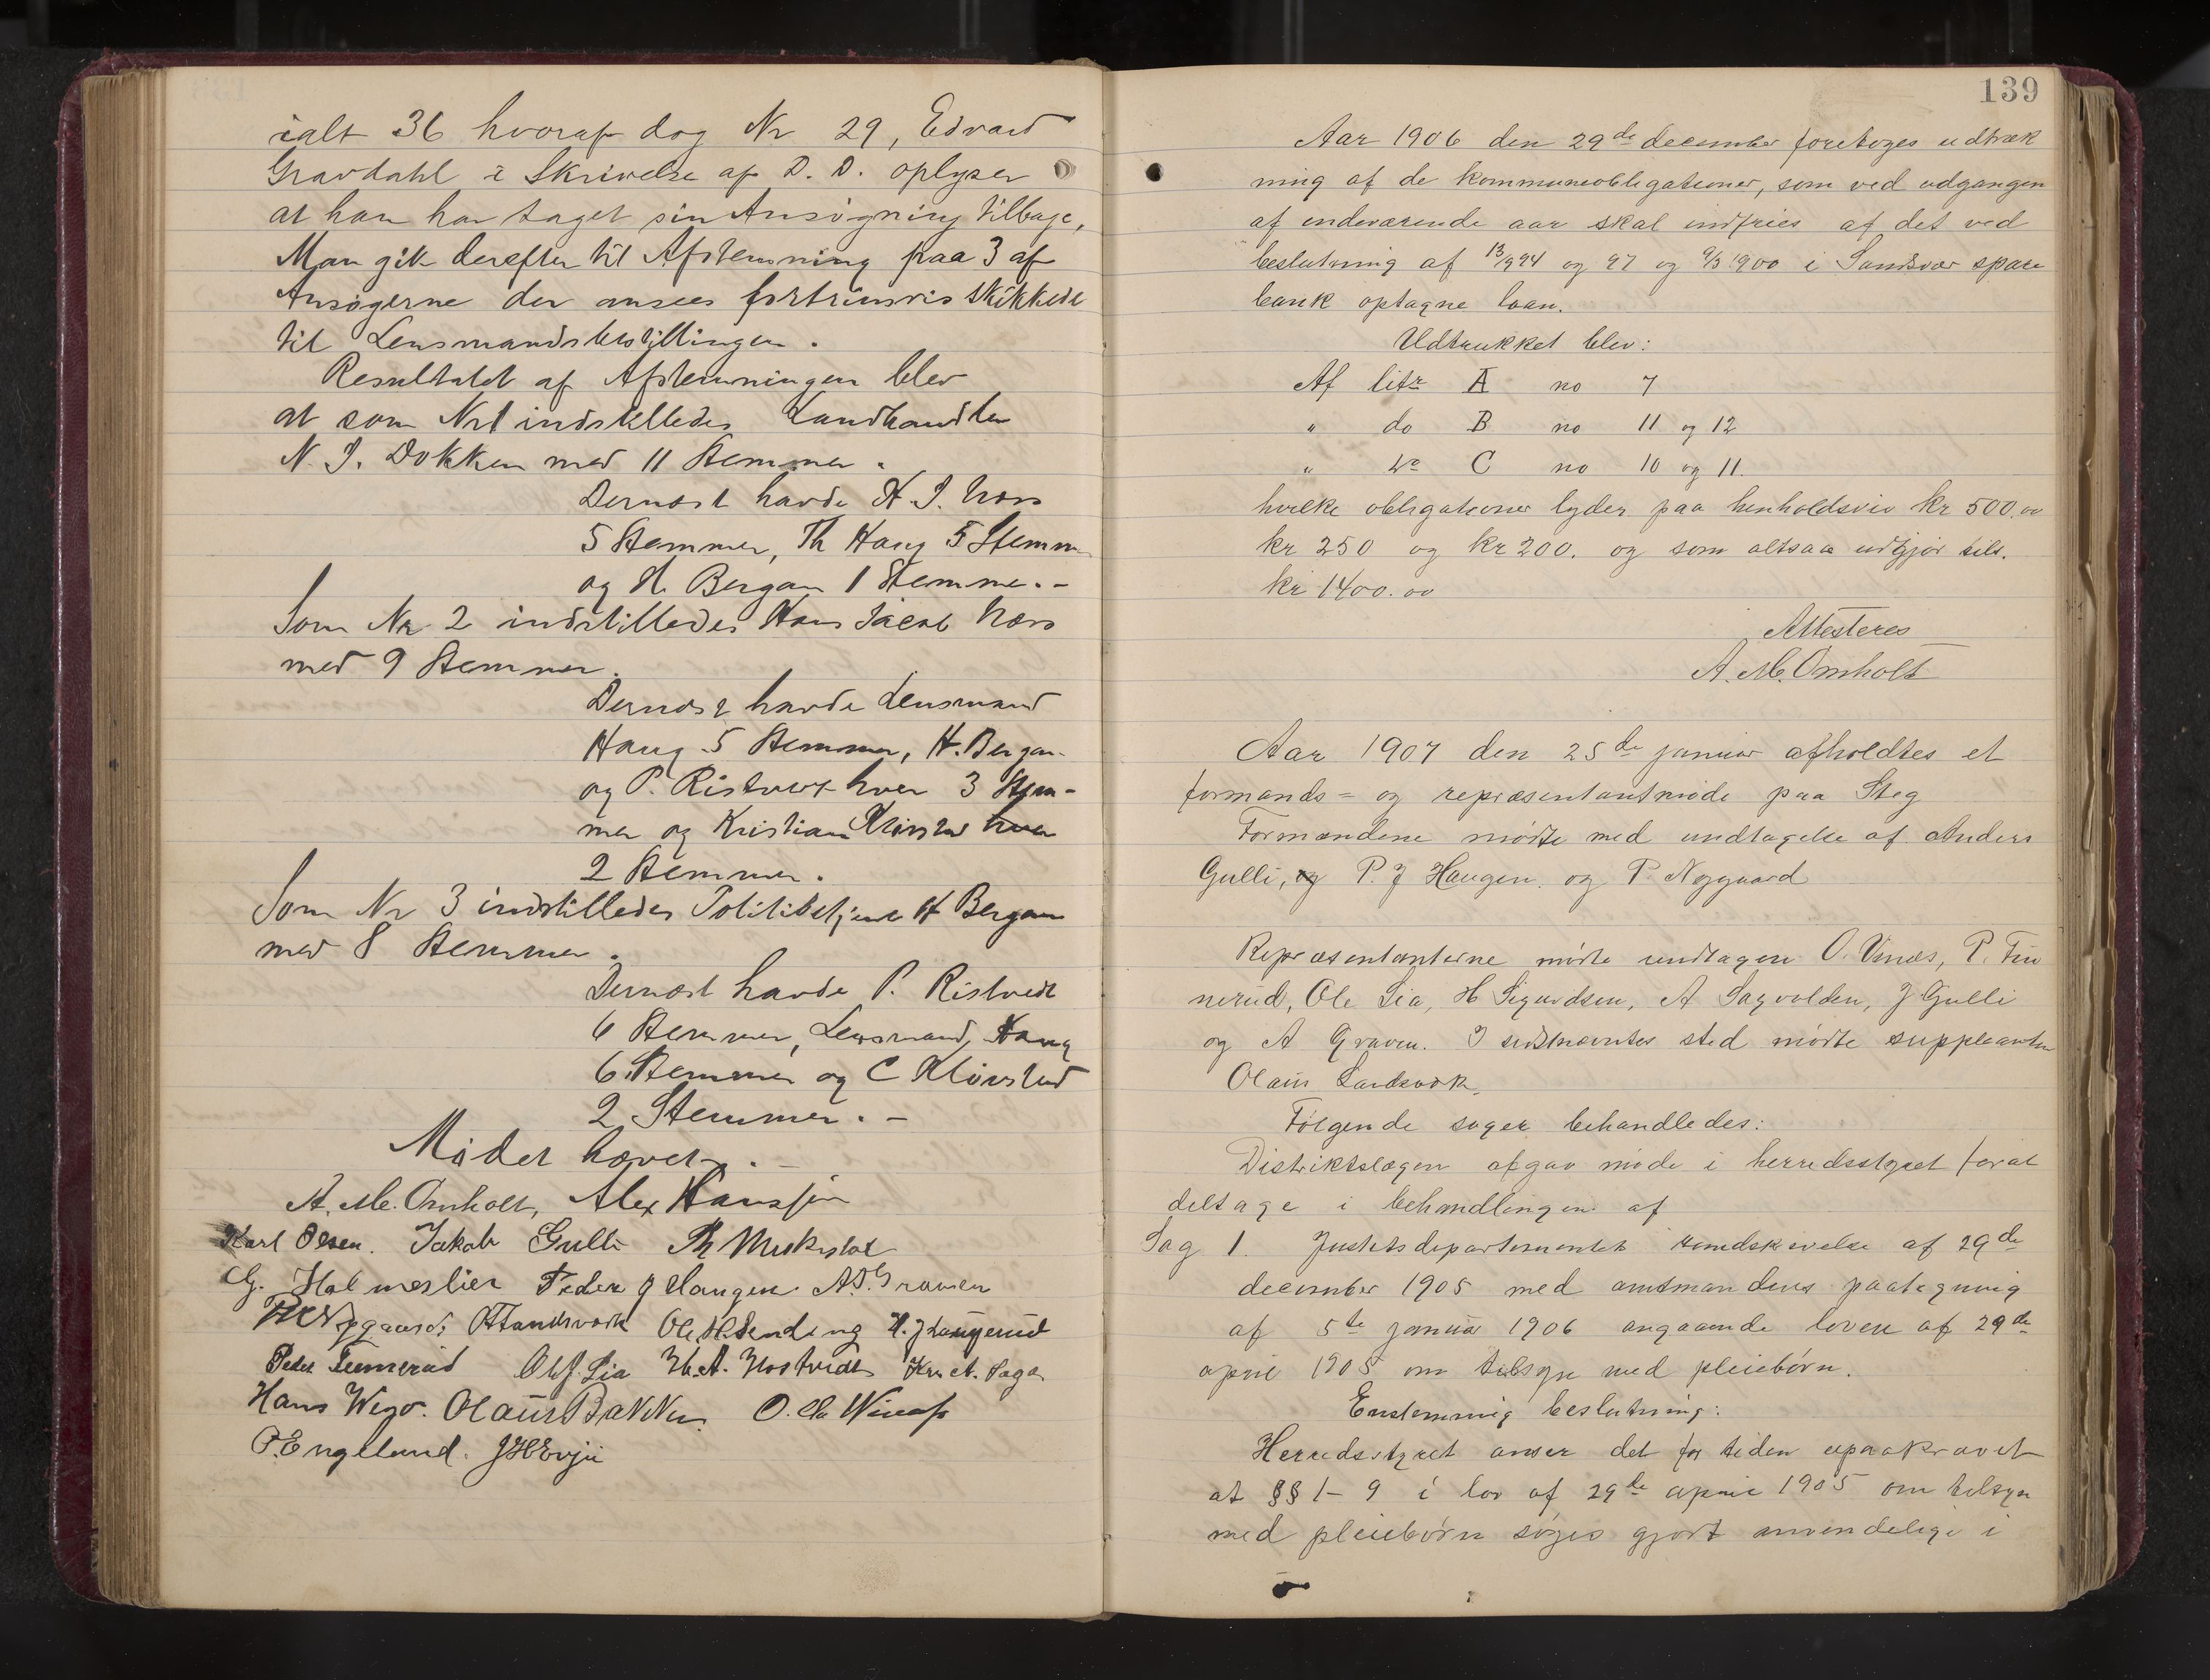 ialt 36 hvoraf dog Nr 29, Edvard
Gravdahl i Skrivelse af D. D. oplyser
at han har taget sin Ansøgning tilbage,
Man gik derefter til Afstemning paa 3 af
Ansøgerne der ansees fortrinsvis skikkede
til Lensmandsbestillingen.
Resultatet af Afstemningen blev
at som Nr 1 indstilledes Landhandler
N. J. Dokken med 11 Stemmer.
Dernæst havde H. J. Næss
5 Stemmer, Th Haug 5 Stemm
og H. Bergan 1 Stemme. -
Som Nr 2 indstilledes Hans Jacob Næss
med 9 Stemmer.
Dernæst havde Lensmand
Haug 5 Stemmer, H. Bergan
og P. Ristvedt hver 3 Stem-
mer og Kristian Kløvstad hver
2 Stemmer.
Som Nr 3 indstilledes Politibetjent H Bergan
med 8 Stemmer.
Dernæst havde P. Ristvedt
6 Stemmer, Lensmand Haug
6 Stemmer og C Kløvstad
2 Stemmer. -
Mødet hævet. -
A. M. Omholt, Alex Hansson
Karl Olsen. Jakob Gulli Th Mukistad
G. Halmøslier Peder J Haugen A. P. Graven
P Nygaard O Landsverk Ole H. Sending H. J Laugerud
Peder Tinnerud Ole J. Lia H. A. Hostvedt Kr. A. Saga
Hans Wego. Olaus Bakken O. Winæs
P. Engelund. J H Evju
139
Aar 1906 den 29de december foretoges udtræk
ning af de kommuneobligationer, som ved udgangen
af indeværende aar skal indfries af det ved
beslutning af 13/9 94 og 97 og 9/3 1900 i Sandsvær spare
bank optagne laan.
Udtrukket blev:
Af litr A no 7
" do B no 11 og 12
" do C no 10 og 11.
hvilke obligationer lyder paa henholdsvis kr 500.00
kr 250 og kr 200. og som altsaa udgjør tils.
kr 1400.00
Attesteres
A. M. Omholt
Aar 1907 den 25de januar afholdtes et
formands- og repræsentantmøde paa Steg
Formændene mødte med undtagelse af Anders
Gulli, og P. J Haugen. og P. Nygaard
Repræsentanterne mødte undtagen O. Vinæs, P. Tin
nerud, Ole Lia, H Sigurdsen, A Sagvolden, J Gulli
og A Graven. I sidstnævntes sted mødte suppleanten
Olaus Landsverk.
Følgende sager behandledes:
Distriktslægen afgav møde i herredsstyret forat
deltage i behandlingen af
Sag 1. Justitsdepartementets rundskrivelse af 29de
december 1905 med amtmandens paategning
af 5te januar 1906 angaaende loven af 29de
april 1905 om tilsyn med pleiebørn.
Enstemmig beslutning:
Herredsstyret anser det for tiden upaakrævet
at §§ 1-9 i lov af 29de april 1905 om tilsyn
med pleiebørn søges gjort anvendelige i